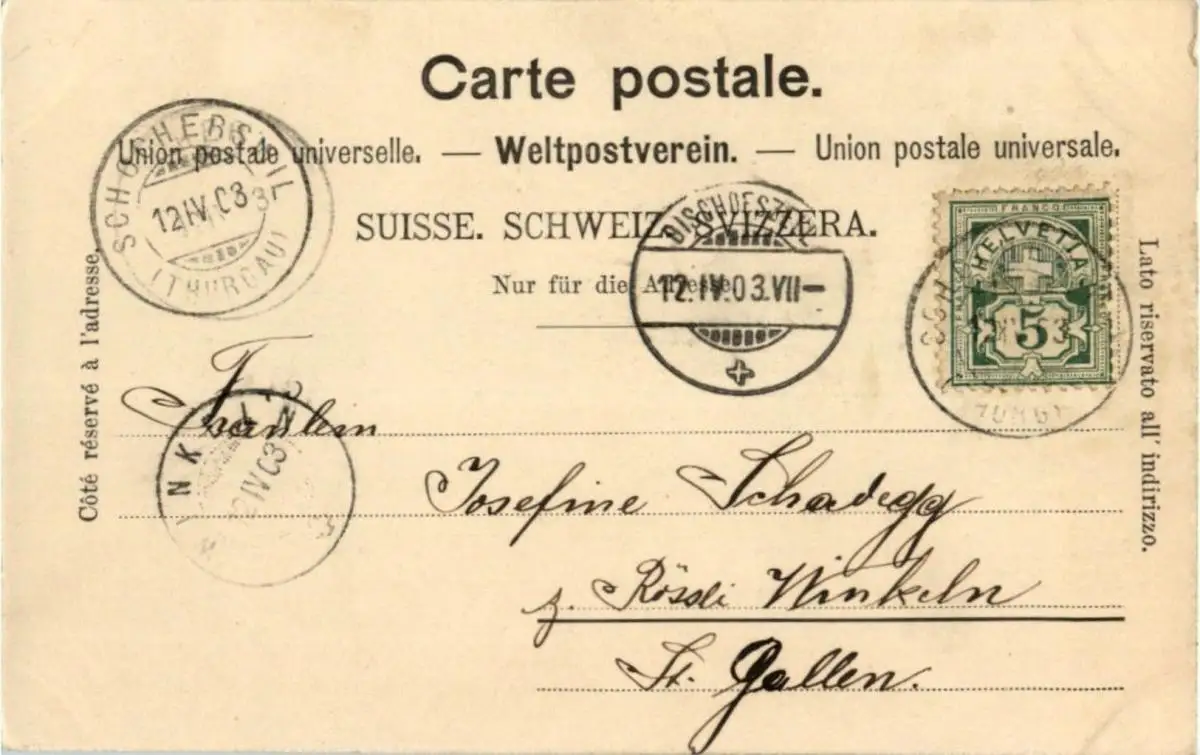 Carte postale.
Union postale universelle. — Weltpostverein. — Union postale universale.
SUISSE. SCHWEIZ. SVIZZERA.
Nur für die Adresse.
Côté réservé à l'adresse.
Lato riservato all' indirizzo.
SCHOCHERSWIL
12 IV 03
(THURGAU)
BISCHOFSZELL
12.IV.03.VII—
FRANCO
HELVETIA
5
WINKELN
12 IV 03
Fräulein
Josefine Schadegg
z. Rössli Winkeln
St. Gallen.